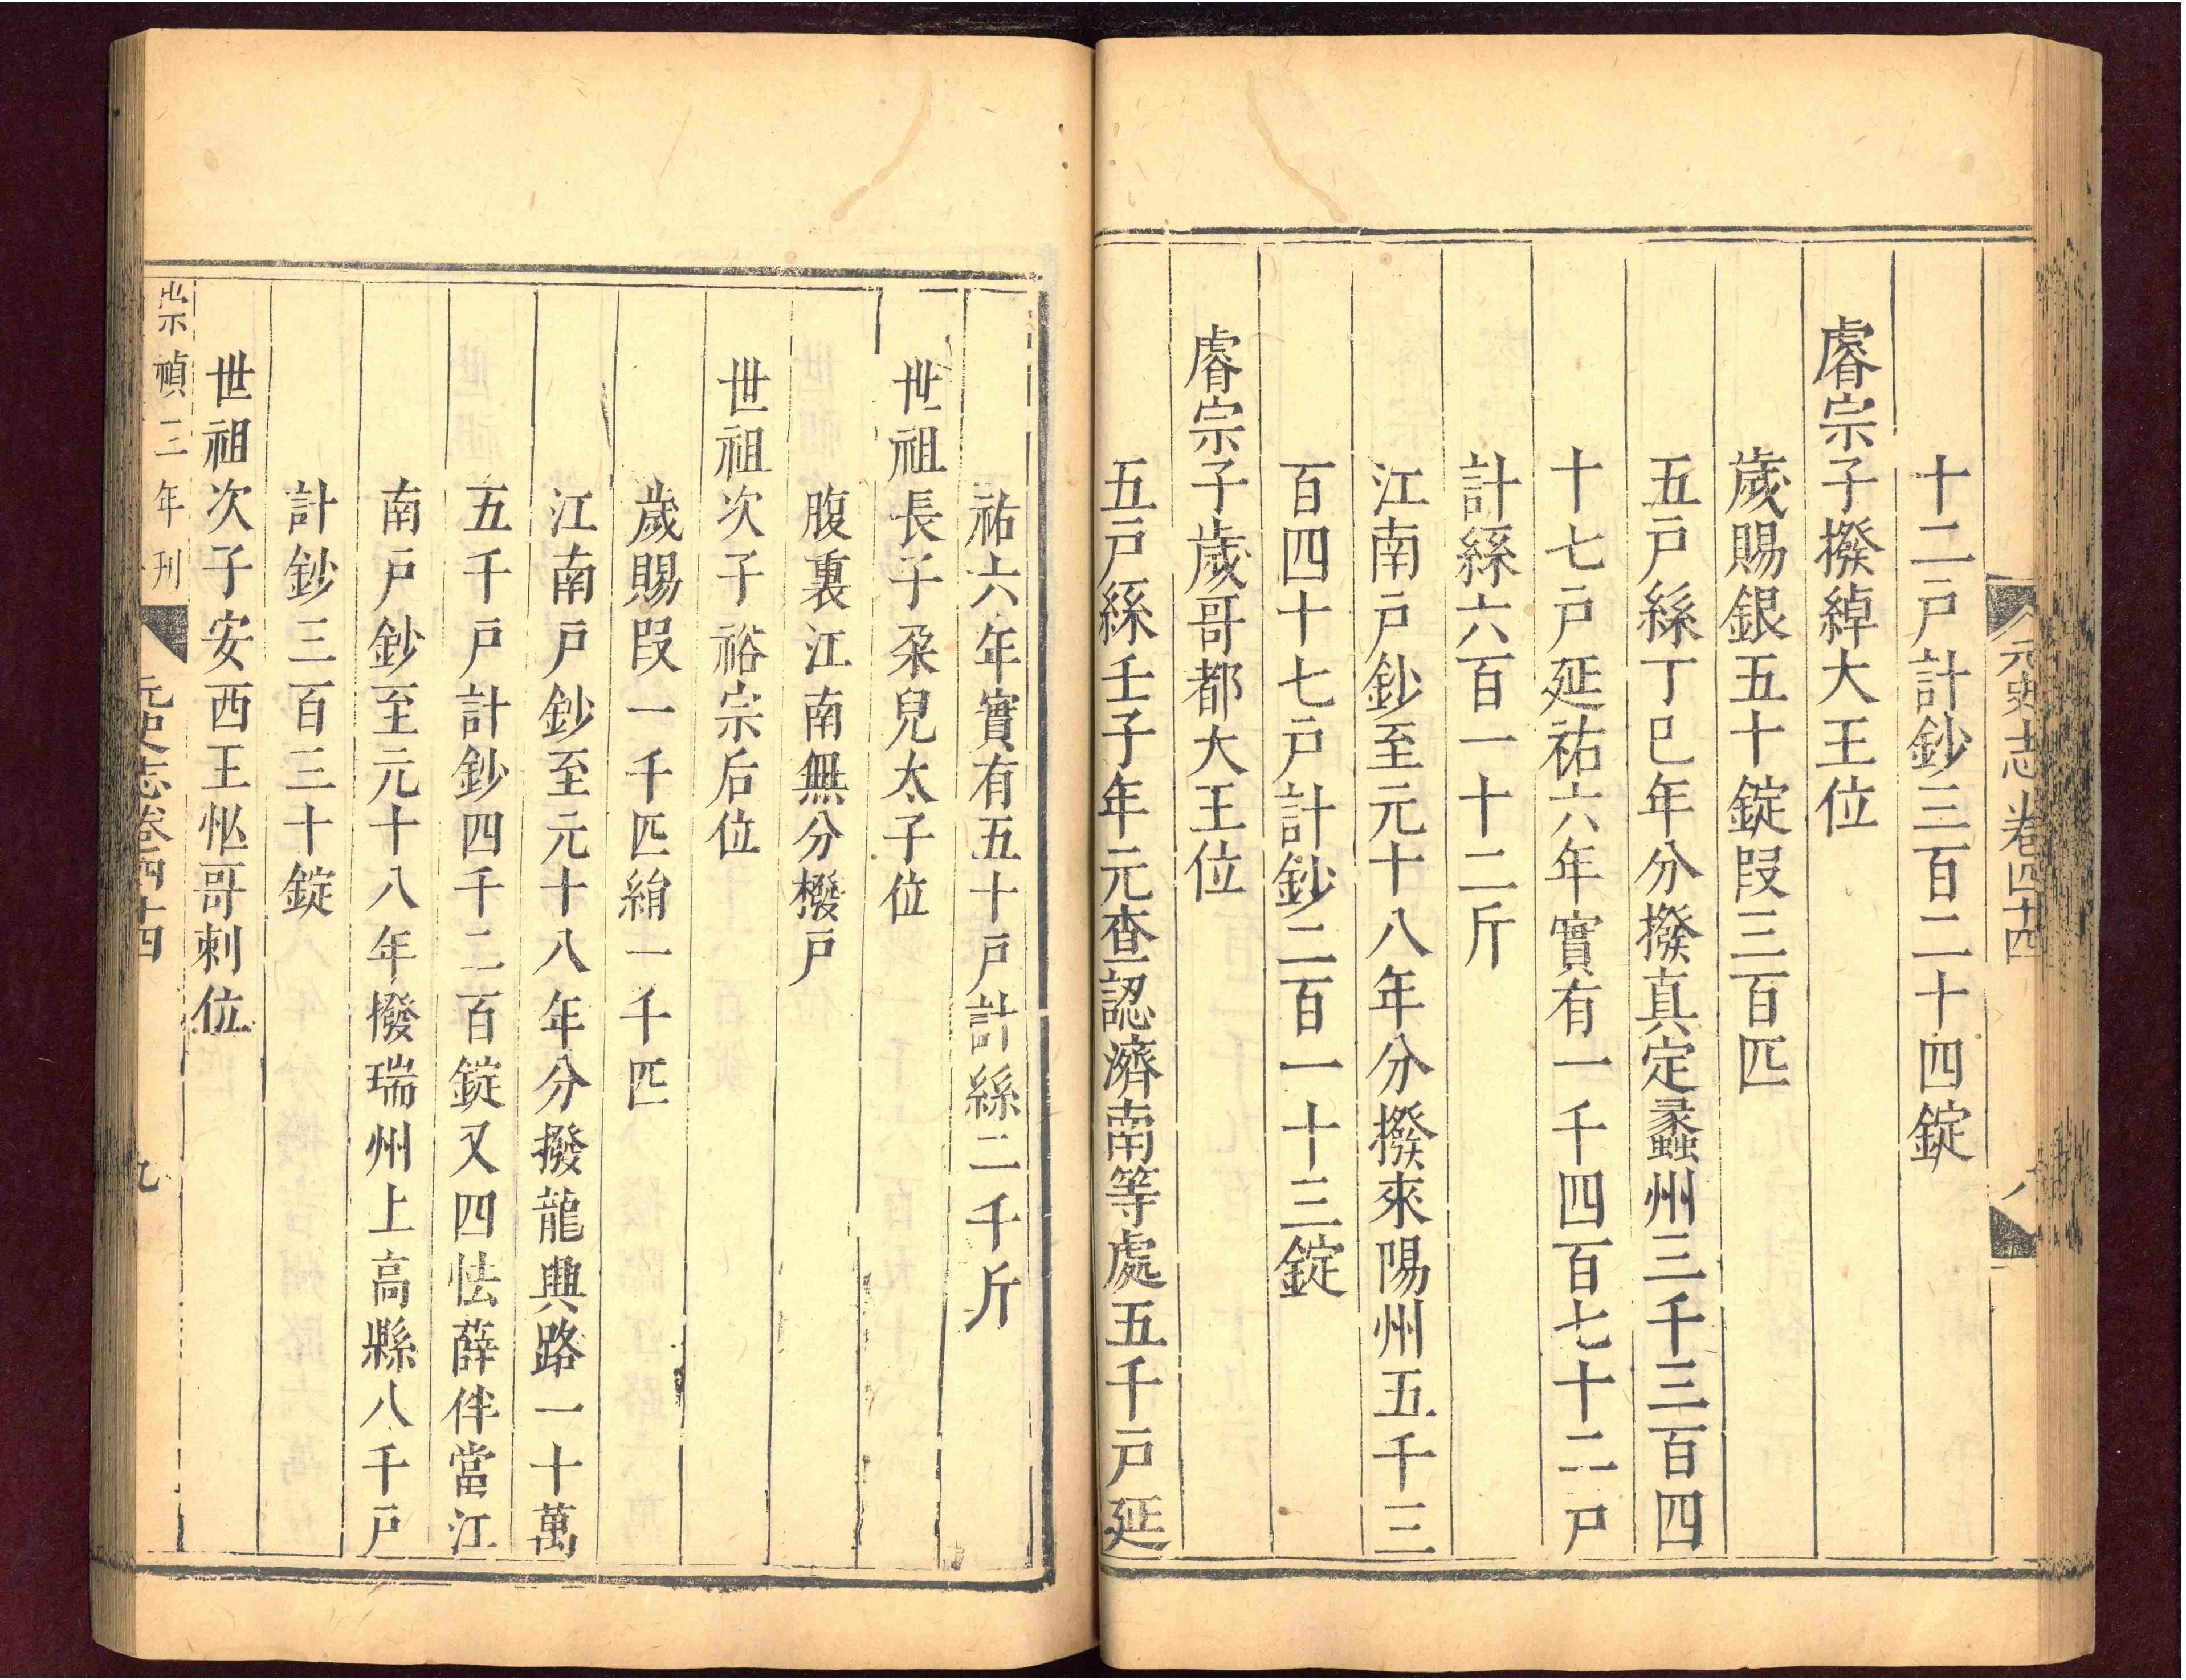 元史志卷四十四
八
十二戸計鈔三百二十四錠
睿宗子撥綽大王位
歲賜銀五十錠叚三百匹
五戸絲丁巳年分撥真定蠡州三千三百四
十七戸延祐六年實有一千四百七十二戸
計絲六百一十二斤
江南戸鈔至元十八年分撥來陽州五千三
百四十七戸計鈔二百一十三錠
睿宗子歲哥都大王位
五戸絲壬子年元查認濟南等處五千戸延
祐六年實有五十戸計絲二千斤
世祖長子朶兒太子位
腹裏江南無分撥戸
世祖次子裕宗后位
歲賜叚一千匹絹一千匹
江南戸鈔至元十八年分撥龍興路一十萬
五千戸計鈔四千二百錠又四怯薛伴當江
南戸鈔至元十八年撥瑞州上高縣八千戸
計鈔三百三十錠
世祖次子安西王忙哥刺位
崇禎三年刊
元史志卷四十四
九